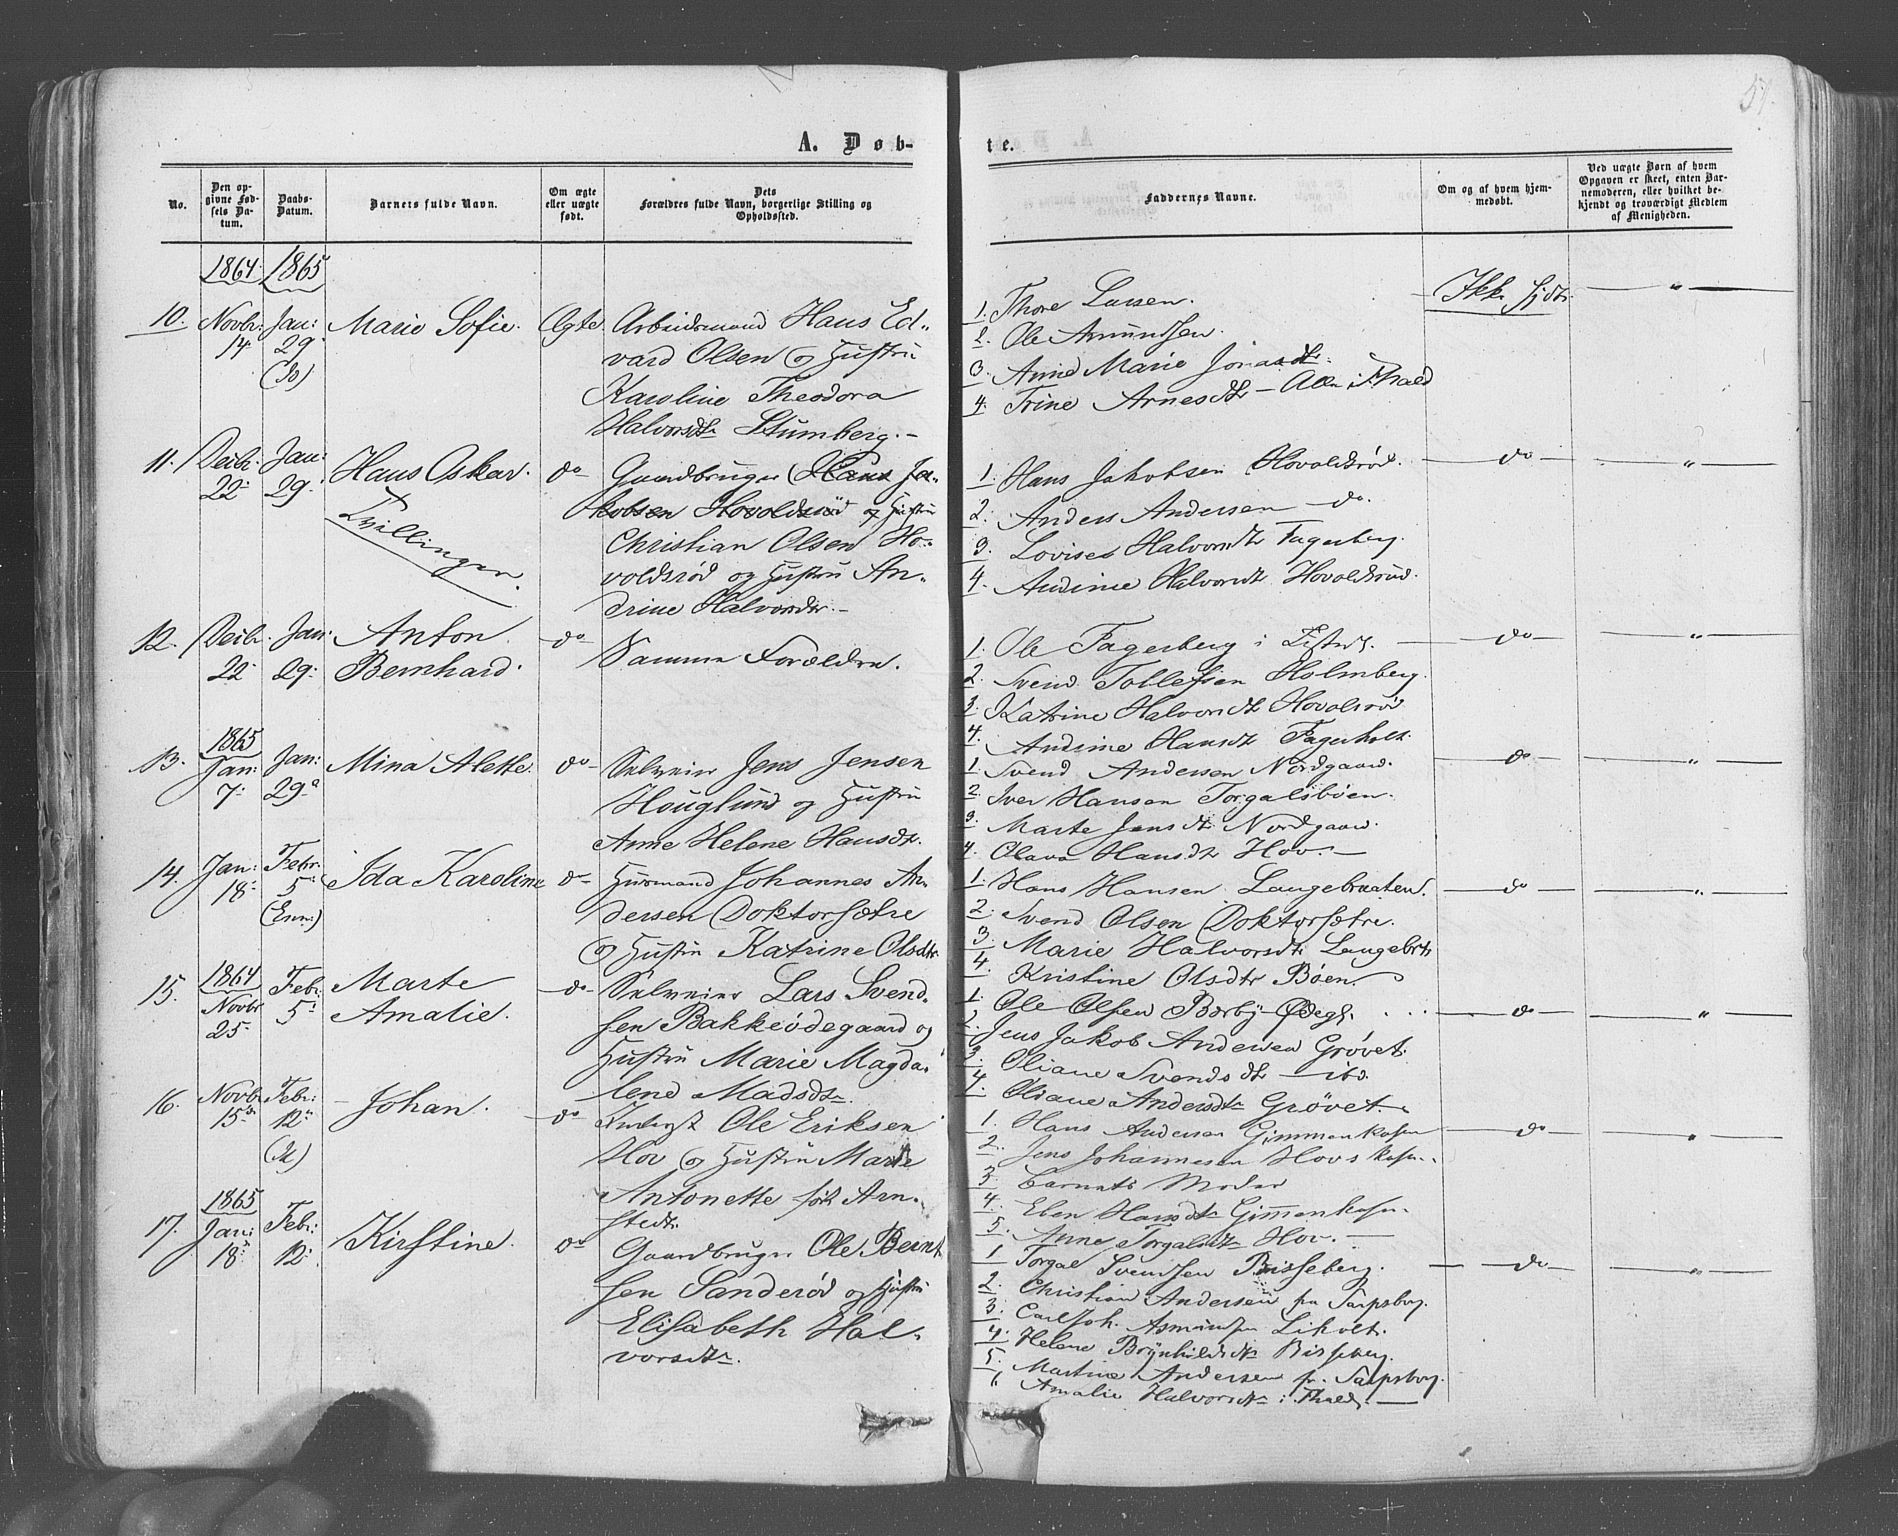 51.
A. Døb-
te.
No.
Den op-
givne Fød-
sels Da-
tum.
Daabs-
Datum.
Barnets fulde Navn.
Om ægte
eller uægte
født.
Dets
Forældres fulde Navn, borgerlige Stilling og
Opholdssted.
Faddernes Navne.
Om og af hvem hjem-
medøbt.
Ved uægte Børn af hvem
Opgaven er skeet, enten Bar-
nemoderen, eller hvilket be-
kjendt og troværdigt Medlem
af Menigheden.
1864. 1865
10. Novbr: 14. Jan: 29. Marie Sofie. Ægte Arbeidsmand Hans Ed-
vard Olsen og Hustru
Karoline Theodora
Halvorsdtr Stumberg.-
1. Thore Larsen.
2. Ole Amundsen.
3. Anne Marie Jonasdtr.
4. Trine Arnesdtr - Alle i Fhald
Ikke hjdt. "
11. Decbr. 22. Jan: 29. Hans Oskar. do Gaardbruger Hans Ja-
kobsen Hovoldsrød og Hustru
Christian Olsen Ho-
voldsrød og Hustru An-
drine Halvorsdtr.-
Tvillinger.
1. Hans Jakobsen Hovoldsrød.
2. Anders Andersen - do.
3. Lovise Halvorsdtr Fagerberg.
4. Andrine Halvorsdtr Hovoldsrød.
do "
12. Decbr. 22. Jan: 29. Anton
Bernhard. do Samme Forældre.
1. Ole Fagerberg i
2. Svend Tollefsen Holmberg.
3. Katrine Halvorsdtr Hovolsrød
4. Andrine Hansdtr Fagerholt.
do "
1865
13. Jan: 7. Jan: 29. Mina Alette. do Selveier Jens Jensen
Houglund og Hustru
Anne Helene Hansdtr.
1. Svend Andersen Nordgaard.
2. Iver Hansen Torgalsbøen.
3. Marte Jensdtr Nordgaard.
4. Olava Hansdtr Hov. -
do "
14. Jan: 18. Febr: 5. Ida Karoline do Husmand Johannes An-
dersen Doktorsætre
og Hustru Katrine Olsdtr
1. Hans Hansen Langebraaten.
2. Svend Olsen Doktorsætre.
3. Marie Halvorsdtr Langebrtn
4. Kristine Olsdtr Bøen.
do "
1864
15. Novbr 25. Febr 5. Marte
Amalie. do Selveier Lars Svend-
sen Bakkeødegaard og
Hustru Marie Magda-
lene Madsdtr.
1. Ole Olsen Bærby-Ødeg.
2. Jens Jakob Andersen Grøvet.
3. Oliane Svendsdtr - ibd.
4. Oliane Andersdtr Grøvet.
do "
16. Novbr 15. Febr: 12. Johan. do Inderst Ole Eriksen
Hov og Hustru Marie
Antonette født Arn-
stedt.
1. Hans Andersen Gimmenkasen
2. Jens Johannesen Hovskasen.
3. Barnets Moder
4. Eben Hansdtr Gimmenkasen.
5. Anne Torgalsdtr Hov. -
do "
1865
17. Jan: 18. Febr: 12. Kirstine. do Gaardbruger Ole Bernt-
sen Sanderød og Hustru
Elisabeth Hal-
vorsdtr.
1 Torgal Svendsen Bisseberg.
2. Christian Andersen fra Sarpsborg.
3. Carl Joh. Asmundsen Likolt.
4. Helene Brynhildsdtr Bisseberg.
5. Martine Andersen fr. Sarpsborg.
6 Amalie Halvorsdtr i Fhald. -
do "